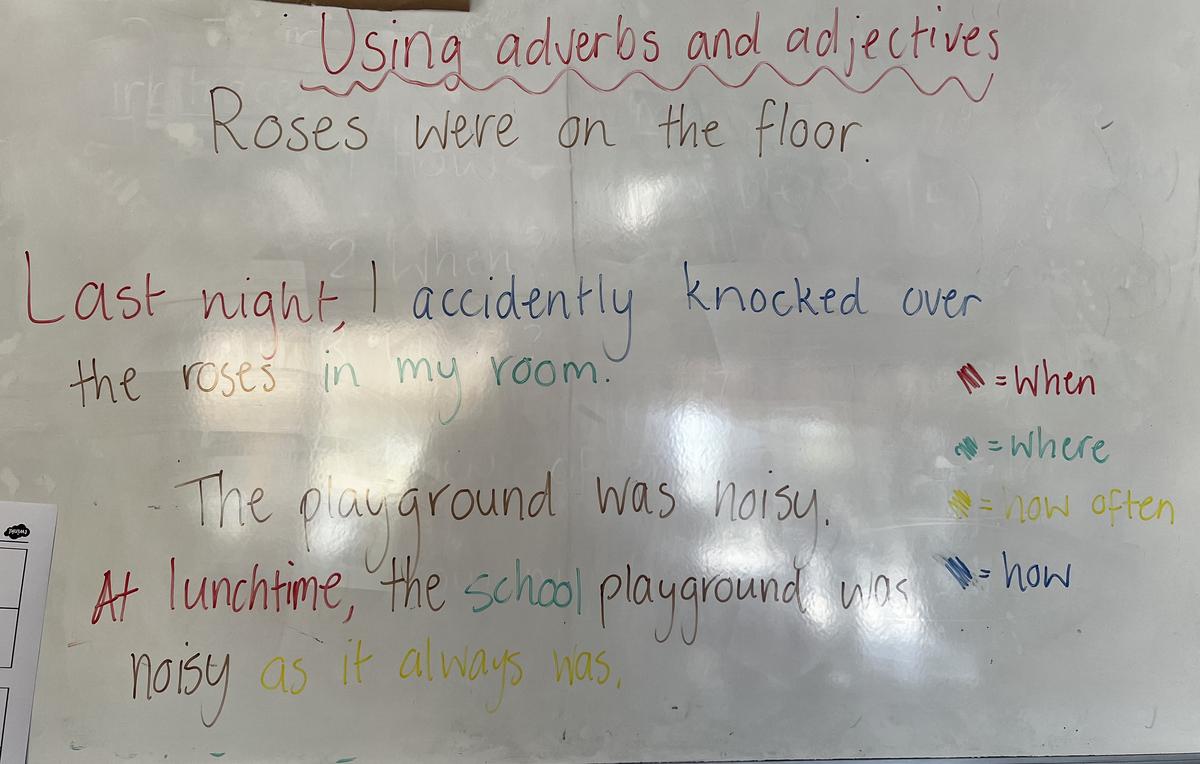 Using adverbs and adjectives
Roses were on the floor.
Last night, I accidently knocked over
the roses in my room.
= When
= Where
= how often
= how
The playground was noisy.
At lunchtime, the school playground was
noisy as it always was.